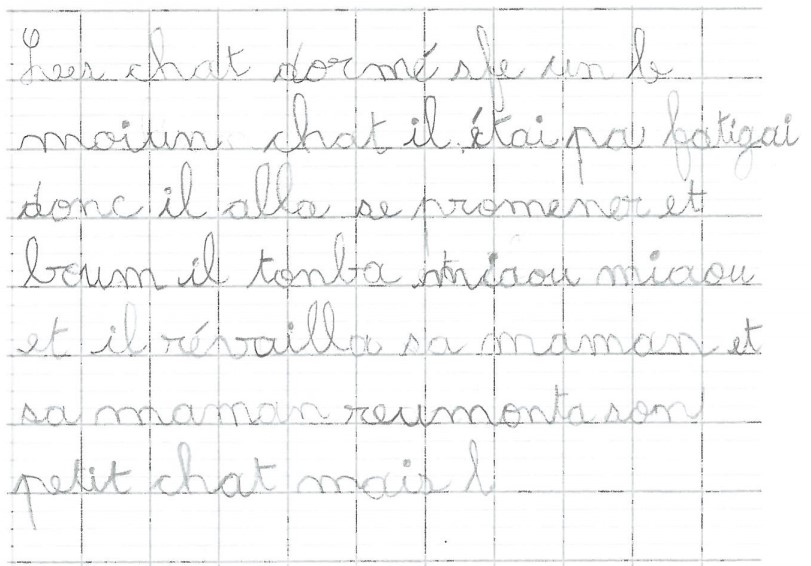 Les chat dormé sfe un le
moiun chat il étai pa fatigai
donc il alla se promener et
boum il tonba miaou miaou
et il révailla sa maman et
sa maman reumonta son
petit chat mais l